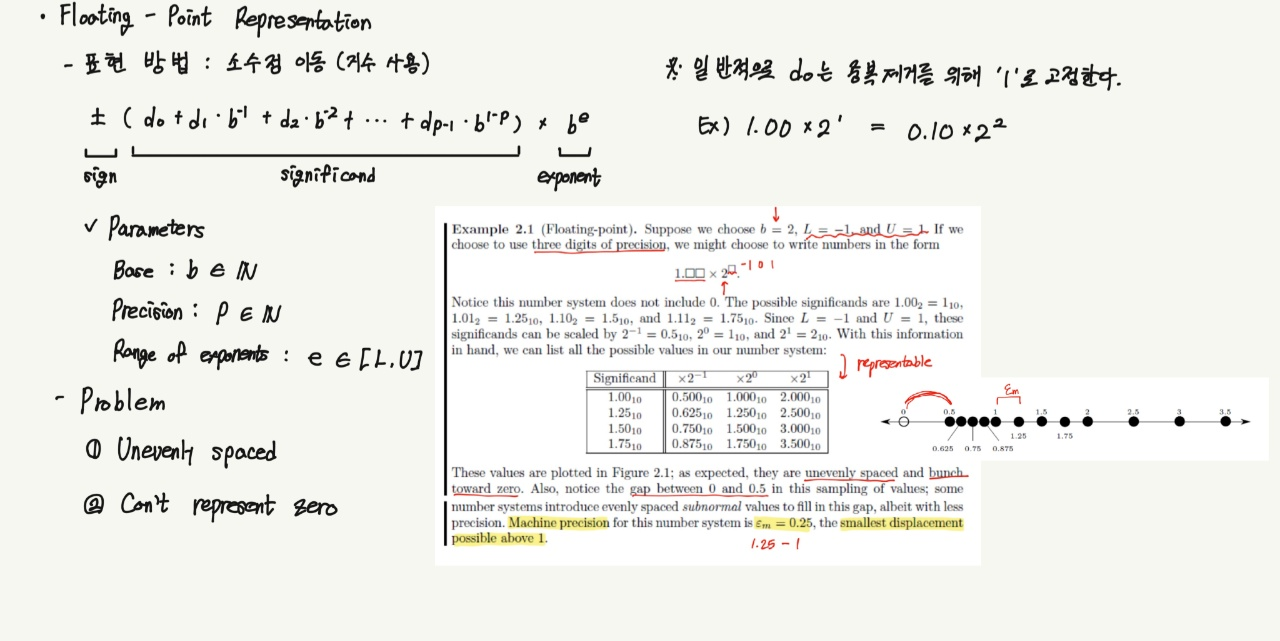 • Floating - Point Representation
- 표현 방법 : 소수점 이동 (지수 사용)
± ( d₀ + d₁ · b⁻¹ + d₂ · b⁻² + ⋯ + dₚ₋₁ · b¹⁻ᵖ ) × bᵉ
sign significand exponent
※ 일반적으로 d₀는 중복제거를 위해 '1'로 고정한다.
Ex) 1.00 × 2¹ = 0.10 × 2²
✓ Parameters
Base : b ∈ ℕ
Precision : p ∈ ℕ
Range of exponents : e ∈ [L, U]
- Problem
① Unevenly spaced
② Can't represent zero
Example 2.1 (Floating-point). Suppose we choose b = 2, L = −1, and U = 1. If we
choose to use three digits of precision, we might choose to write numbers in the form
1.□□ × 2□.
-1 0 1
Notice this number system does not include 0. The possible significands are 1.00₂ = 1₁₀,
1.01₂ = 1.25₁₀, 1.10₂ = 1.5₁₀, and 1.11₂ = 1.75₁₀. Since L = −1 and U = 1, these
significands can be scaled by 2⁻¹ = 0.5₁₀, 2⁰ = 1₁₀, and 2¹ = 2₁₀. With this information
in hand, we can list all the possible values in our number system:
representable
Significand ×2⁻¹ ×2⁰ ×2¹
1.00₁₀ 0.500₁₀ 1.000₁₀ 2.000₁₀
1.25₁₀ 0.625₁₀ 1.250₁₀ 2.500₁₀
1.50₁₀ 0.750₁₀ 1.500₁₀ 3.000₁₀
1.75₁₀ 0.875₁₀ 1.750₁₀ 3.500₁₀
These values are plotted in Figure 2.1; as expected, they are unevenly spaced and bunch
toward zero. Also, notice the gap between 0 and 0.5 in this sampling of values; some
number systems introduce evenly spaced subnormal values to fill in this gap, albeit with less
precision. Machine precision for this number system is εₘ = 0.25, the smallest displacement
possible above 1.
1.25 - 1
εₘ
0 0.5 1 1.5 2 2.5 3 3.5
1.25 1.75
0.625 0.75 0.875